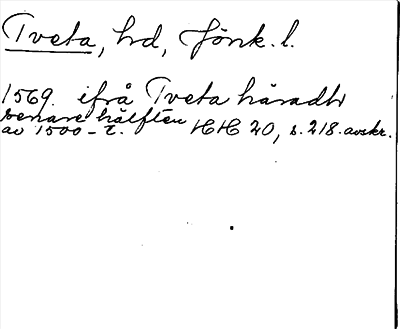 Tveta, hd, Jönk. l.
1569. ifrå Tveta häradt
senare hälften
av 1500-t. HH 20, s. 218. avskr.